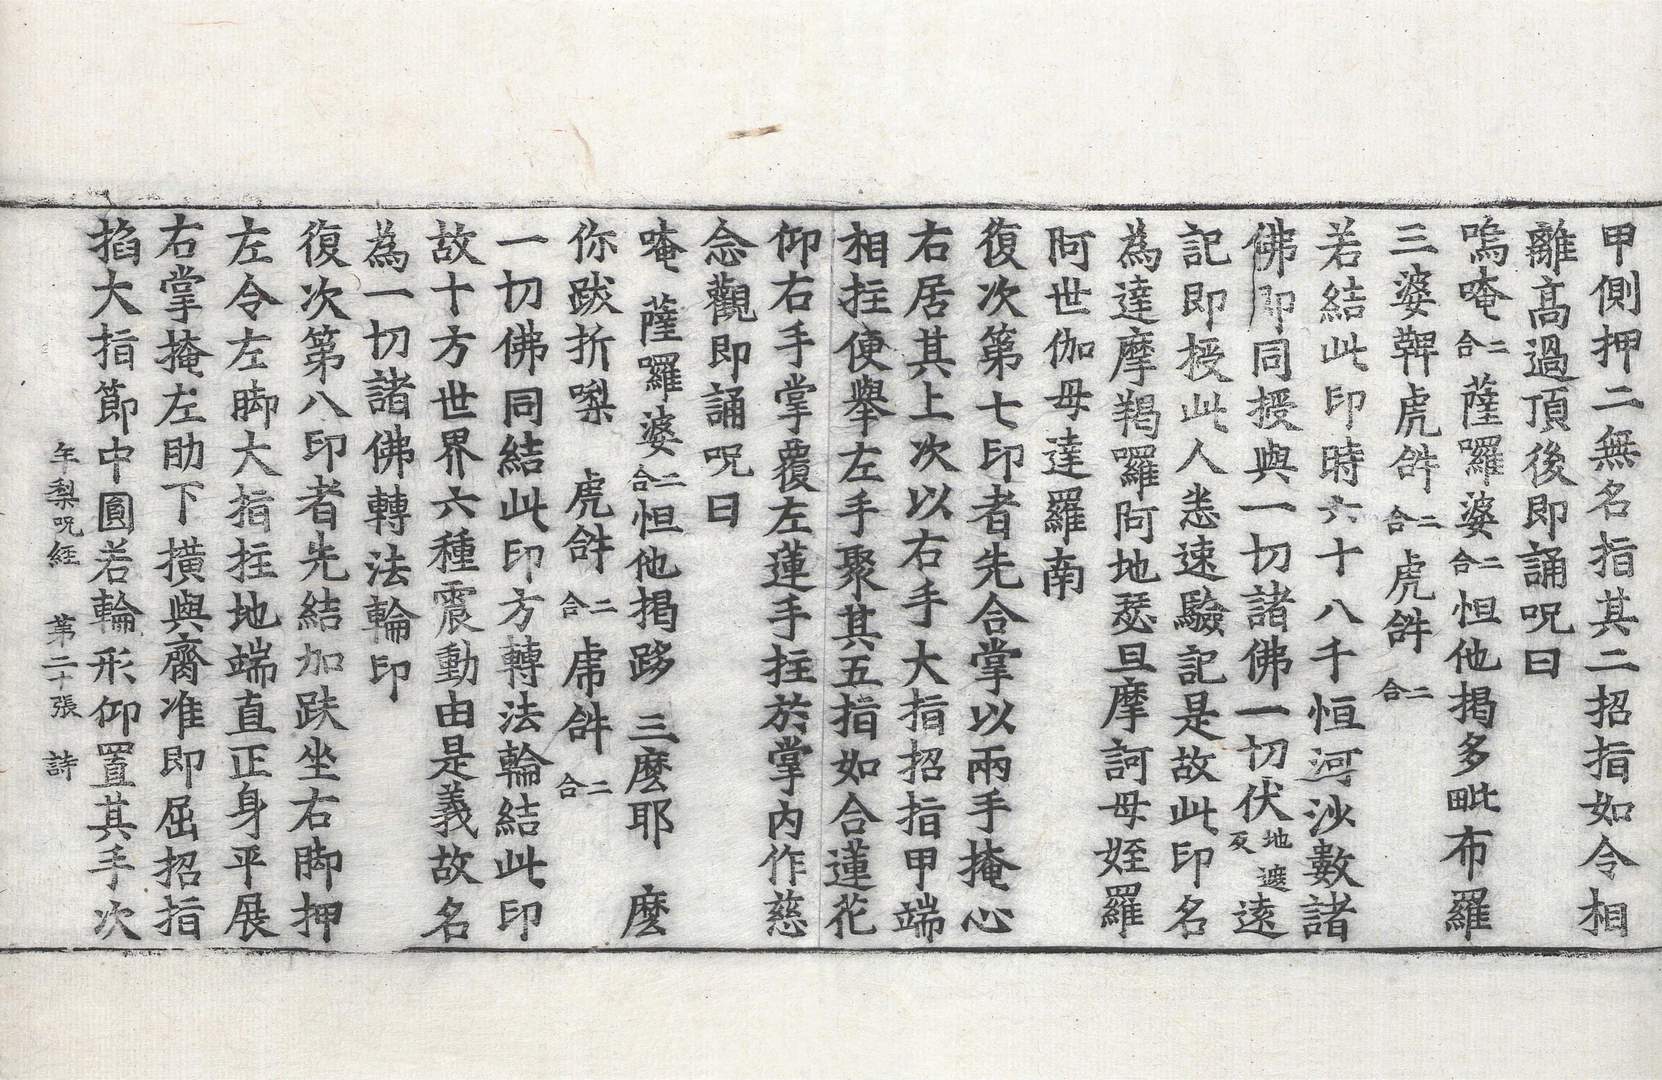 甲側押二無名指其二招指如令相
離高過頂後即誦呪曰
嗚唵二合薩囉婆二合怛他揭多毗布羅
三婆鞞虎𤙖二合虎𤙖二合
若結此印時六十八千恒河沙數諸
佛即同授與一切諸佛一切伏地遮反遠
記即授此人悉速驗記是故此印名
為達摩羯囉阿地瑟旦摩訶母姪羅
阿世伽母達羅南
復次第七印者先合掌以兩手掩心
右居其上次以右手大指招指甲端
相拄便舉左手聚其五指如合蓮花
仰右手掌覆左蓮手拄於掌內作慈
念觀即誦呪曰
唵 薩囉婆二合怛他揭跢 三麼耶 麼
你跋折㘑 虎𤙖二合虎𤙖二合
一切佛同結此印方轉法輪結此印
故十方世界六種震動由是義故名
為一切諸佛轉法輪印
復次第八印者先結加趺坐右脚押
左令左脚大指拄地端直正身平展
右掌掩左肋下橫與齊准即屈招指
搯大指節中圓若輪形仰置其手次
年梨呪經 第二十張 詩